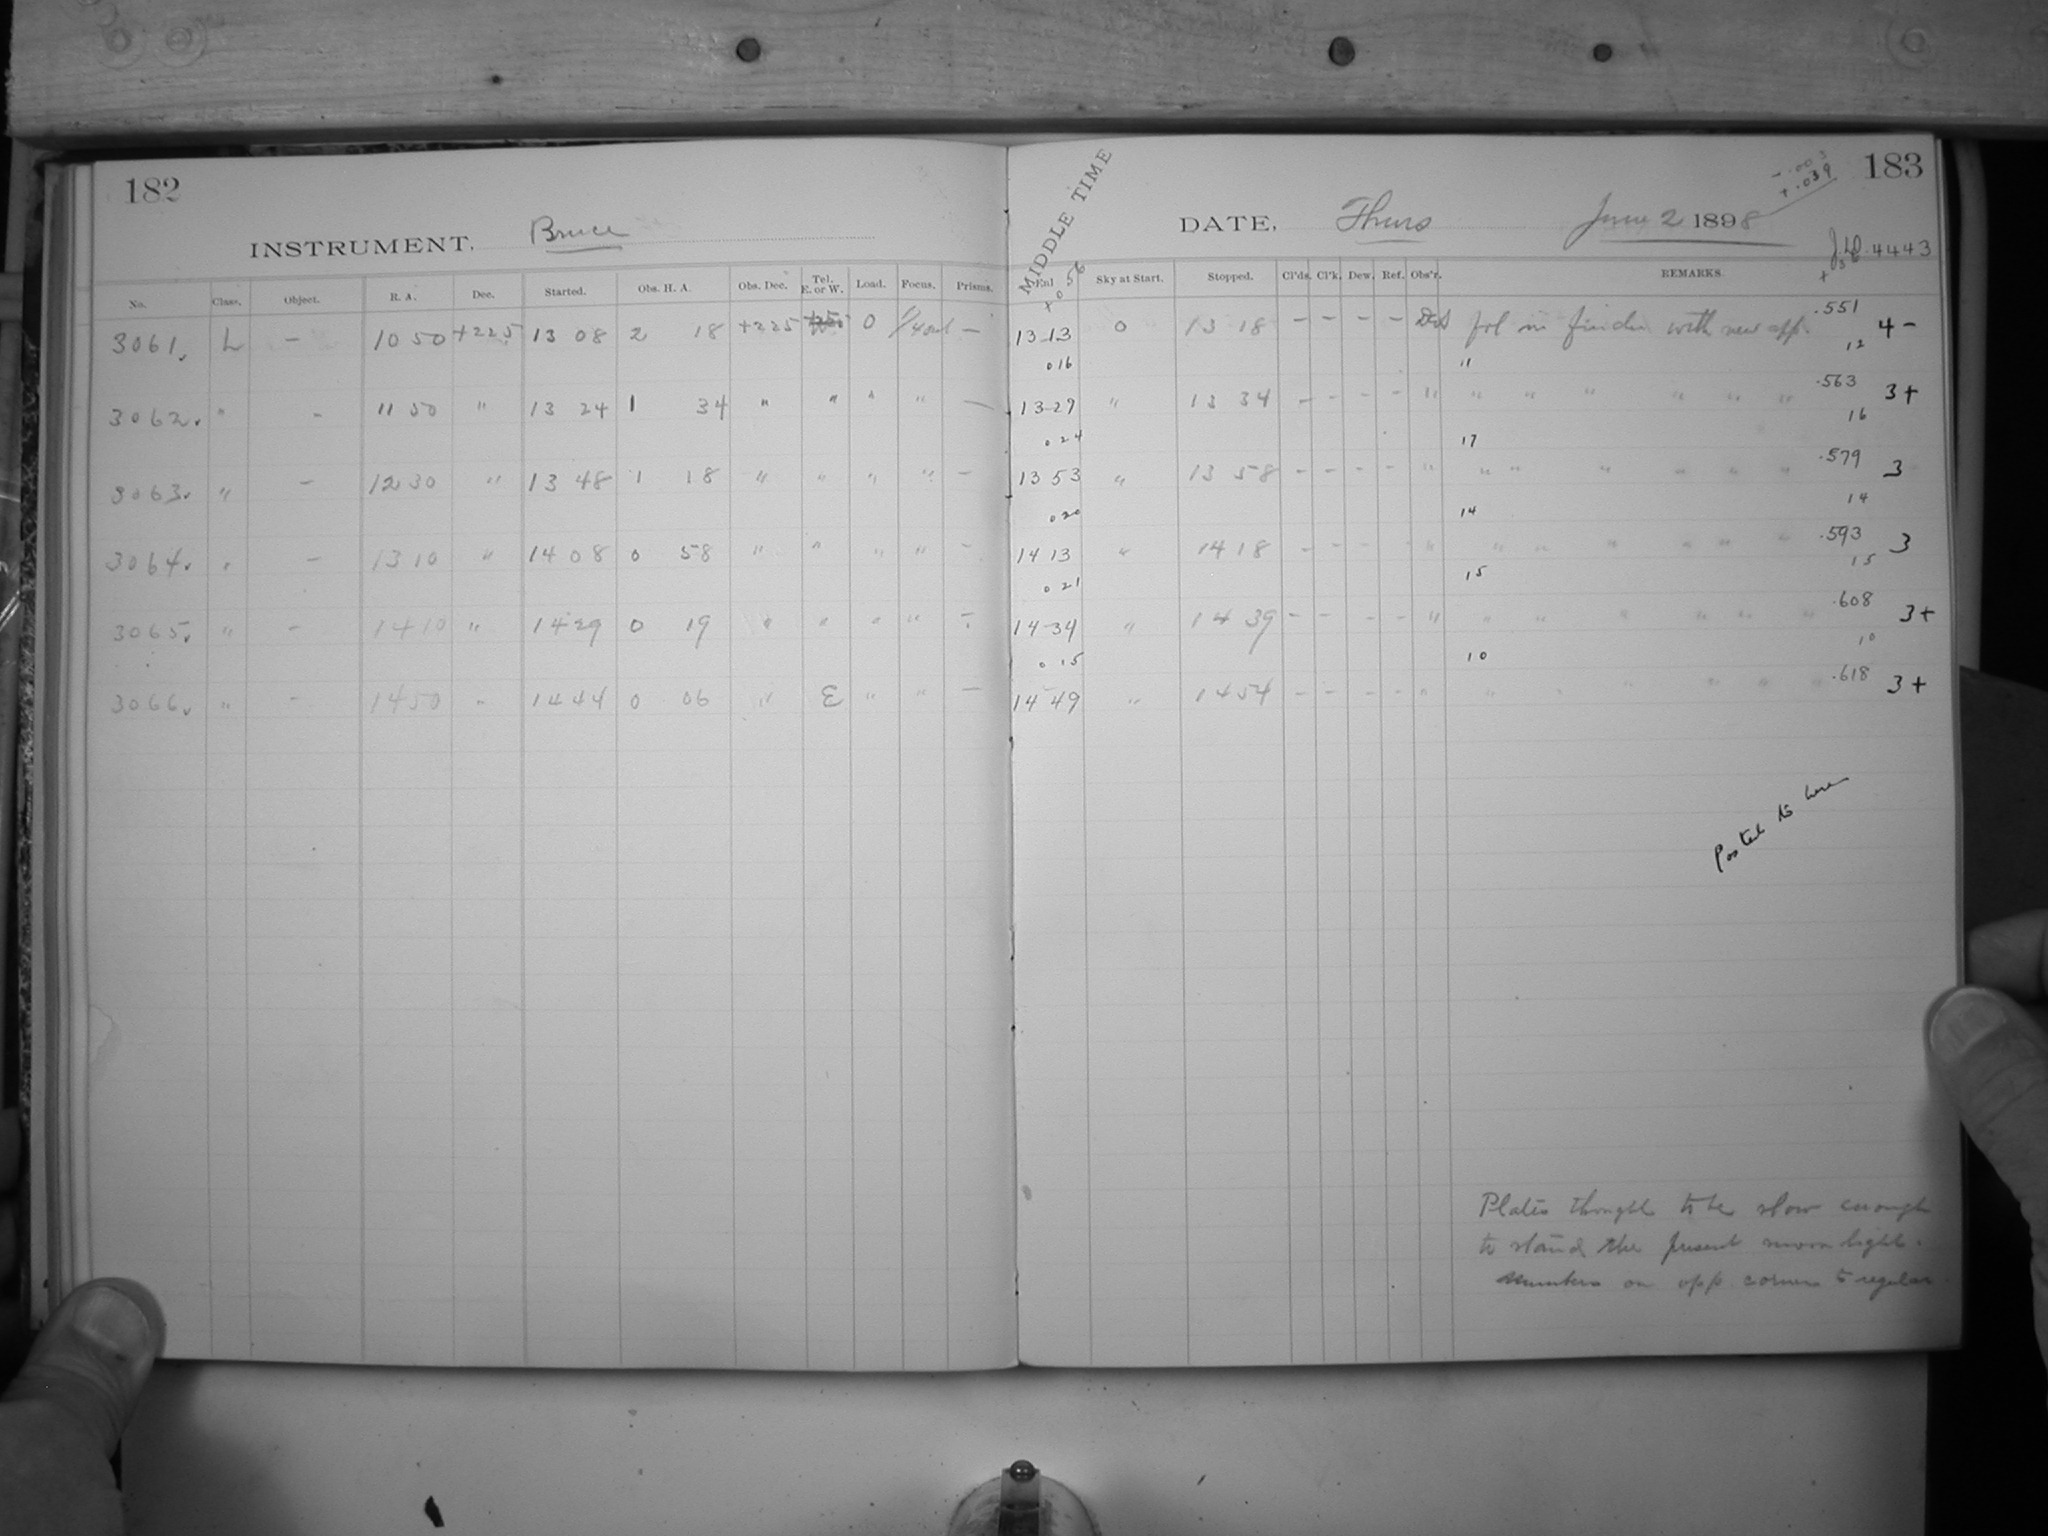 182
INSTRUMENT. Bruce
No. Class. Object. R. A. Dec. Started. Obs. H. A. Obs. Dec. Tel. E. or W. Load. Focus. Prisms.
3061. L - 10 50 +225 13 08 2 18 +225 0 -
3062. " - 11 50 " 13 24 1 34 " " " " -
3063. " - 12 30 " 13 48 1 18 " " " " -
3064. " - 13 10 " 14 08 0 58 " " " " -
3065. " - 14 10 " 14 29 0 19 " " " " -
3066. " - 14 50 " 14 44 0 06 " E " " -
183
MIDDLE TIME
-.003
+.039
DATE, Thurs June 2 1898
J.D. 4443
+0 56
Sky at Start. Stopped. Cl'ds. Cl'k. Dew. Ref. Obs'r. REMARKS.
13 13 0 13 18 - - - - fol in finder with new app. .551 4-
016 11 12
13 29 " 13 34 - - - - " " " " " " " .563 3+
024 17 16
13 53 " 13 58 - - - - " " " " " " " .579 3
020 14 14
14 13 " 14 18 - - - - " " " " " " " .593 3
021 15 15
14 34 " 14 39 - - - - " " " " " " " .608 3+
015 10 10
14 49 " 14 54 - - - - " " " " " " " .618 3+
Posted to here
Plates thought to be slow enough
to stand the present moon light.
numbers on opp. corners to regular